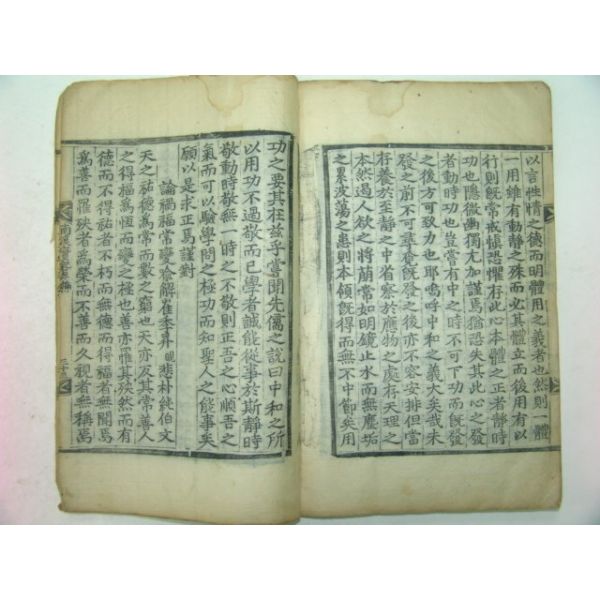 以言性情之德而明體用之義者也然則一體
一用雖有動靜之殊而必其體立而後用有以
行則旣常戒懼恐懼存此心本體之正者靜時
功也隱微幽獨尤加謹焉猶恐失其此心之發
者動時功也豈嘗有中之時不可下功而旣發
之後方可致力也耶嗚呼中和之義大矣哉未
發之前不可尋覓旣發之後亦不容安排但當
存養於至靜之中省察於應物之處存天理之
本然遏人欲之將萌常如明鏡止水而無塵垢
之累波蕩之患則本領旣得而無不中節矣用
功之要其在玆乎嘗聞先儒之說曰中和之所
以用功不過敬而已學者誠能從事於斯靜時
敬動時敬無一時之不敬則正吾之心順吾之
氣而可以驗學問之極功而知聖人之能事矣
願以是求正焉謹對
論禍福常變喩解崔季昇 悲朴純伯文
天之祐德爲常而數之窮也天亦反其常善人
之得福爲恒而變之極也善亦罹其殃然而有
德而不得祐者不朽而無德而得福者無聞焉
爲善而罹殃者爲榮而不善而久視者無稱焉